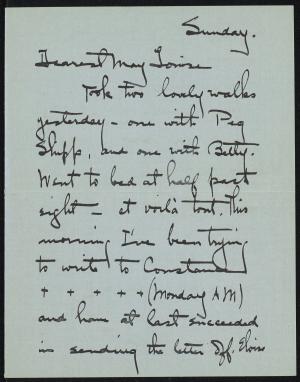 Sunday.
Dearest May Louise
Took two lovely walks
yesterday - one with Peg
Shipp, and one with Betty.
Went to bed at half past
eight - et voilà tout. This
morning I've been trying
to write to Constance
+ + + + + (Monday AM)
and have at last succeeded
in sending the letter off. Eloise